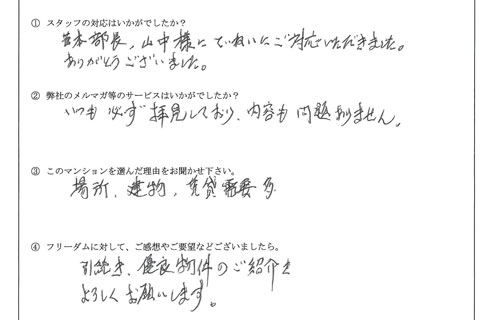 ① スタッフの対応はいかがでしたか?
笹本部長、山中様にていねいにご対応いただきました。
ありがとうございました。
② 弊社のメルマガ等のサービスはいかがでしたか?
いつも必ず拝見しており、内容も問題ありません。
③ このマンションを選んだ理由をお聞かせ下さい。
場所、建物、賃貸需要多
④ フリーダムに対して、ご感想やご要望などございましたら。
引続き、優良物件のご紹介を
よろしくお願いします。